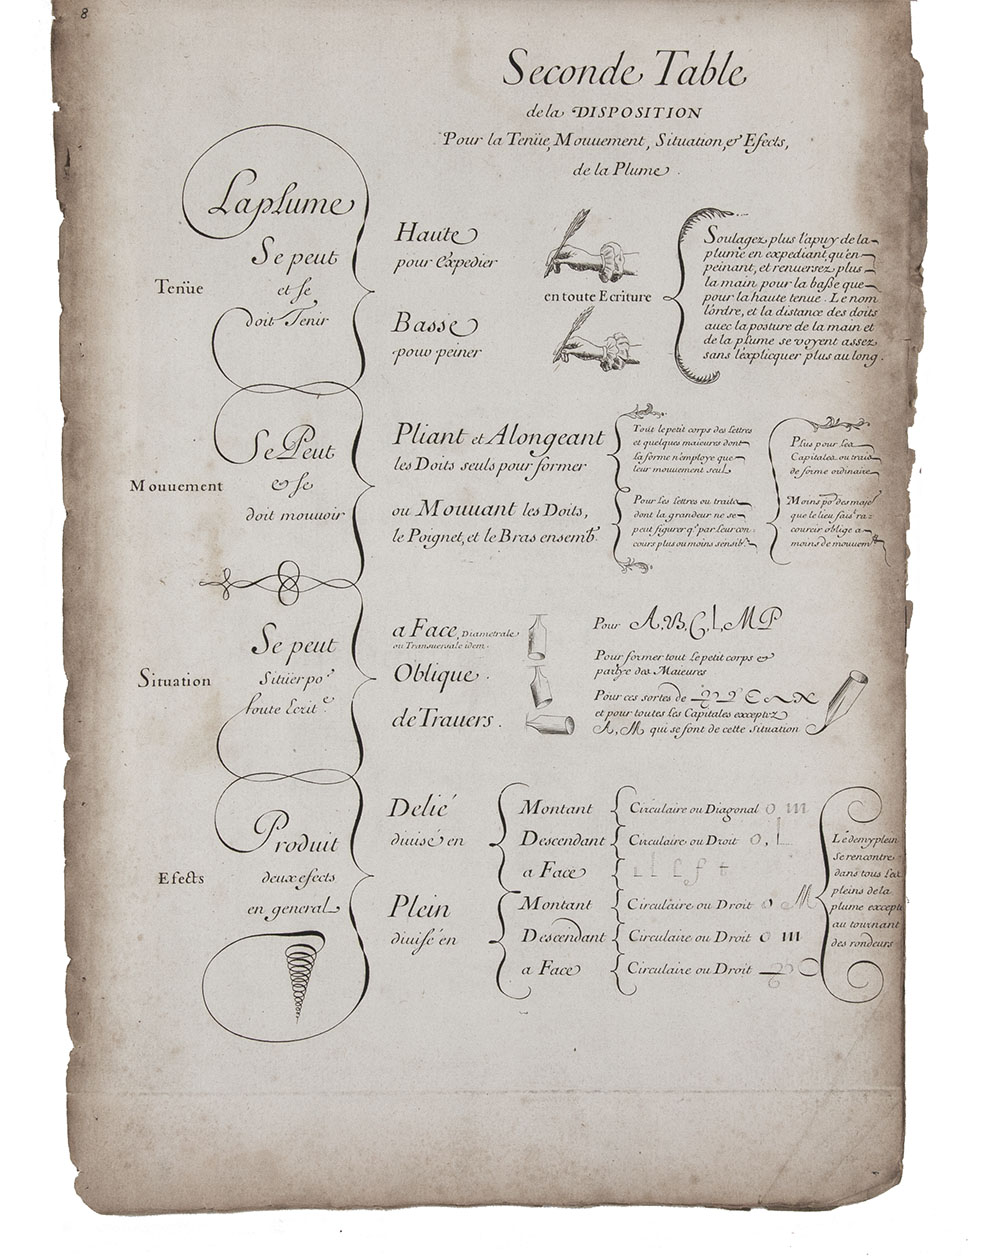 8
Seconde Table
de la DISPOSITION
Pour la Tenüe, Mouuement, Situation, & Efects,
de la Plume.
La plume
Se peut
et se
doit Tenir
Tenüe
Haute
pour Expedier
Basse
pour peiner
en toute Ecriture
Soulagez plus l'apuy de la
plume en expediant qu'en
peinant, et renuersez plus
la main pour la basse que
pour la haute tenue. Le nom
l'ordre, et la distance des doits
auec la posture de la main et
de la plume se voyent assez
sans l'explicquer plus au long.
Mouuement
Se Peut
& se
doit mouuoir
Pliant et Alongeant
les Doits seuls pour former
Tout le petit corps des lettres
et quelques maieures dont
la forme n'employe que
leur mouuement seul
ou Mouuant les Doits,
le Poignet, et le Bras ensemb.
Pour les lettres ou traits
dont la grandeur ne se
peut figurer q. par leur con
cours plus ou moins sensib.
Plus pour les
Capitales ou traits
de forme ordinaire
Moins po.r des
que le lieu fais.t ra
courcir oblige a
moins de mouuem.t
Situation
Se peut
Sitüer po.r
toute Ecrit.e
a Face, Diametrale
ou Transuersale idem.
Pour A, B, C, L, M P
Oblique.
Pour former tout le petit corps &
partye des Maieures
de Trauers.
Pour ces sortes de
et pour toutes les Capitales exceptez
A, M qui se font de cette situation
Efects
Produit
deux efects
en general
Delié
diuisé en
Montant Circulaire ou Diagonal o m
Descendant Circulaire ou Droit o, l
a Face
Plein
diuisé en
Montant Circulaire ou Droit o M
Descendant Circulaire ou Droit o m
a Face Circulaire ou Droit
Le demy plein
se rencontre
dans tous les
pleins de la
plume excepté
au tournant
des rondeurs